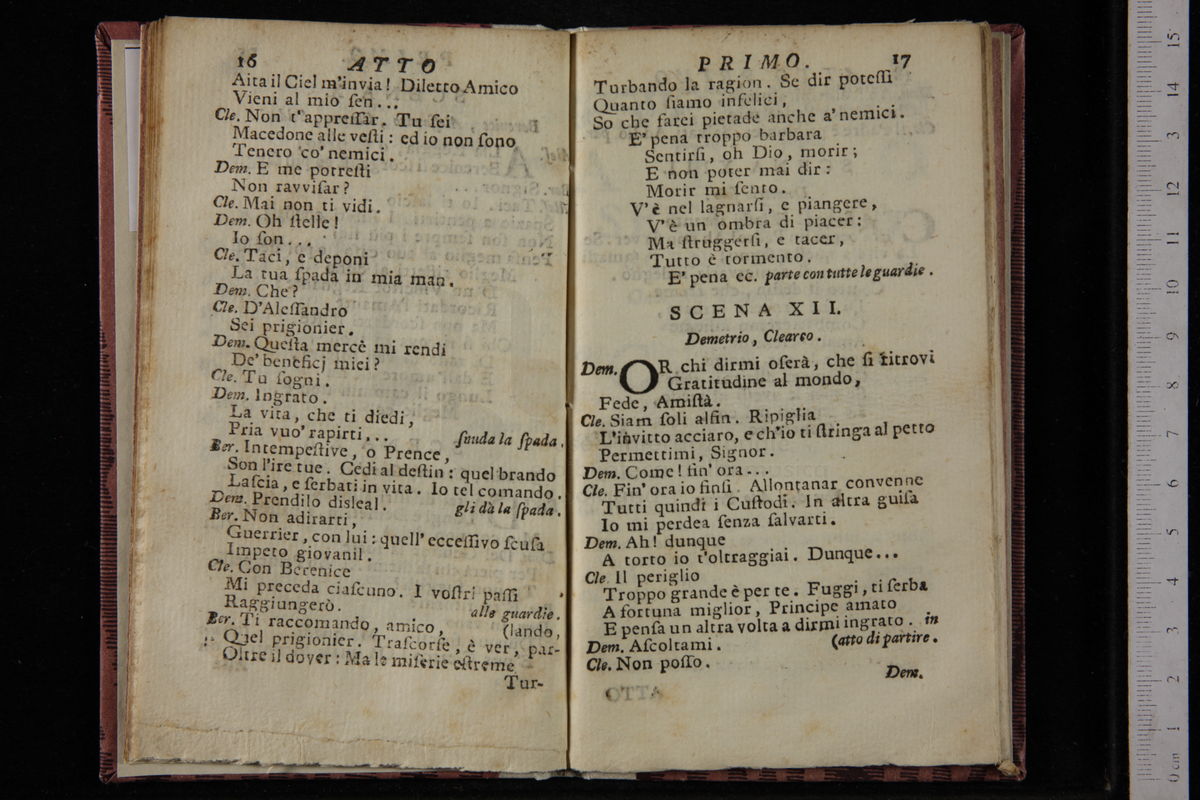 16 ATTO
Aita il Ciel m'invia! Diletto Amico
Vieni al mio ſen...
Cle. Non t'appreſſar. Tu ſei
Macedone alle veſti: ed io non ſono
Tenero co' nemici.
Dem. E me potreſti
Non ravviſar?
Cle. Mai non ti vidi.
Dem. Oh ſtelle!
Io ſon...
Cle. Taci, e deponi
La tua ſpada in mia man.
Dem. Che?
Cle. D'Aleſſandro
Sei prigionier.
Dem. Queſta mercè mi rendi
De' beneficj miei?
Cle. Tu ſogni.
Dem. Ingrato.
La vita, che ti diedi,
Pria vuo' rapirti... ſnuda la ſpada.
Ber. Intempeſtive, o Prence,
Son l'ire tue. Cedi al deſtin: quel brando
Laſcia, e ſerbati in vita. Io tel comando.
Dem. Prendilo disleal. gli dà la ſpada.
Ber. Non adirarti,
Guerrier, con lui: quell' ecceſſivo ſcuſa
Impeto giovanil.
Cle. Con Berenice
Mi preceda ciaſcuno. I voſtri paſſi
Raggiungerò. alle guardie.
Ber. Ti raccomando, amico, (lando,
Quel prigionier. Traſcorſe, è ver, par-
Oltre il dover: Ma le miſerie eſtreme
Tur-
PRIMO. 17
Turbando la ragion. Se dir poteſſi
Quanto ſiamo infelici,
So che farei pietade anche a' nemici.
E' pena troppo barbara
Sentirſi, oh Dio, morir;
E non poter mai dir:
Morir mi ſento.
V'è nel lagnarſi, e piangere,
V'è un ombra di piacer:
Ma ſtruggerſi, e tacer,
Tutto è tormento.
E' pena ec. parte con tutte le guardie.
SCENA XII.
Demetrio, Clearco.
Dem. OR chi dirmi oſerà, che ſi ritrovi
Gratitudine al mondo,
Fede, Amiſtà.
Cle. Siam ſoli alfin. Ripiglia
L'invitto acciaro, e ch'io ti ſtringa al petto
Permettimi, Signor.
Dem. Come! fin' ora...
Cle. Fin' ora io finſi. Allontanar convenne
Tutti quindi i Cuſtodi. In altra guiſa
Io mi perdea ſenza ſalvarti.
Dem. Ah! dunque
A torto io t'oltraggiai. Dunque...
Cle. Il periglio
Troppo grande è per te. Fuggi, ti ſerba
A fortuna miglior, Principe amato
E penſa un altra volta a dirmi ingrato. in
Dem. Aſcoltami. (atto di partire.
Cle. Non poſſo.
Dem.
15
14
13
12
11
10
9
8
7
6
5
4
3
2
1
0 cm